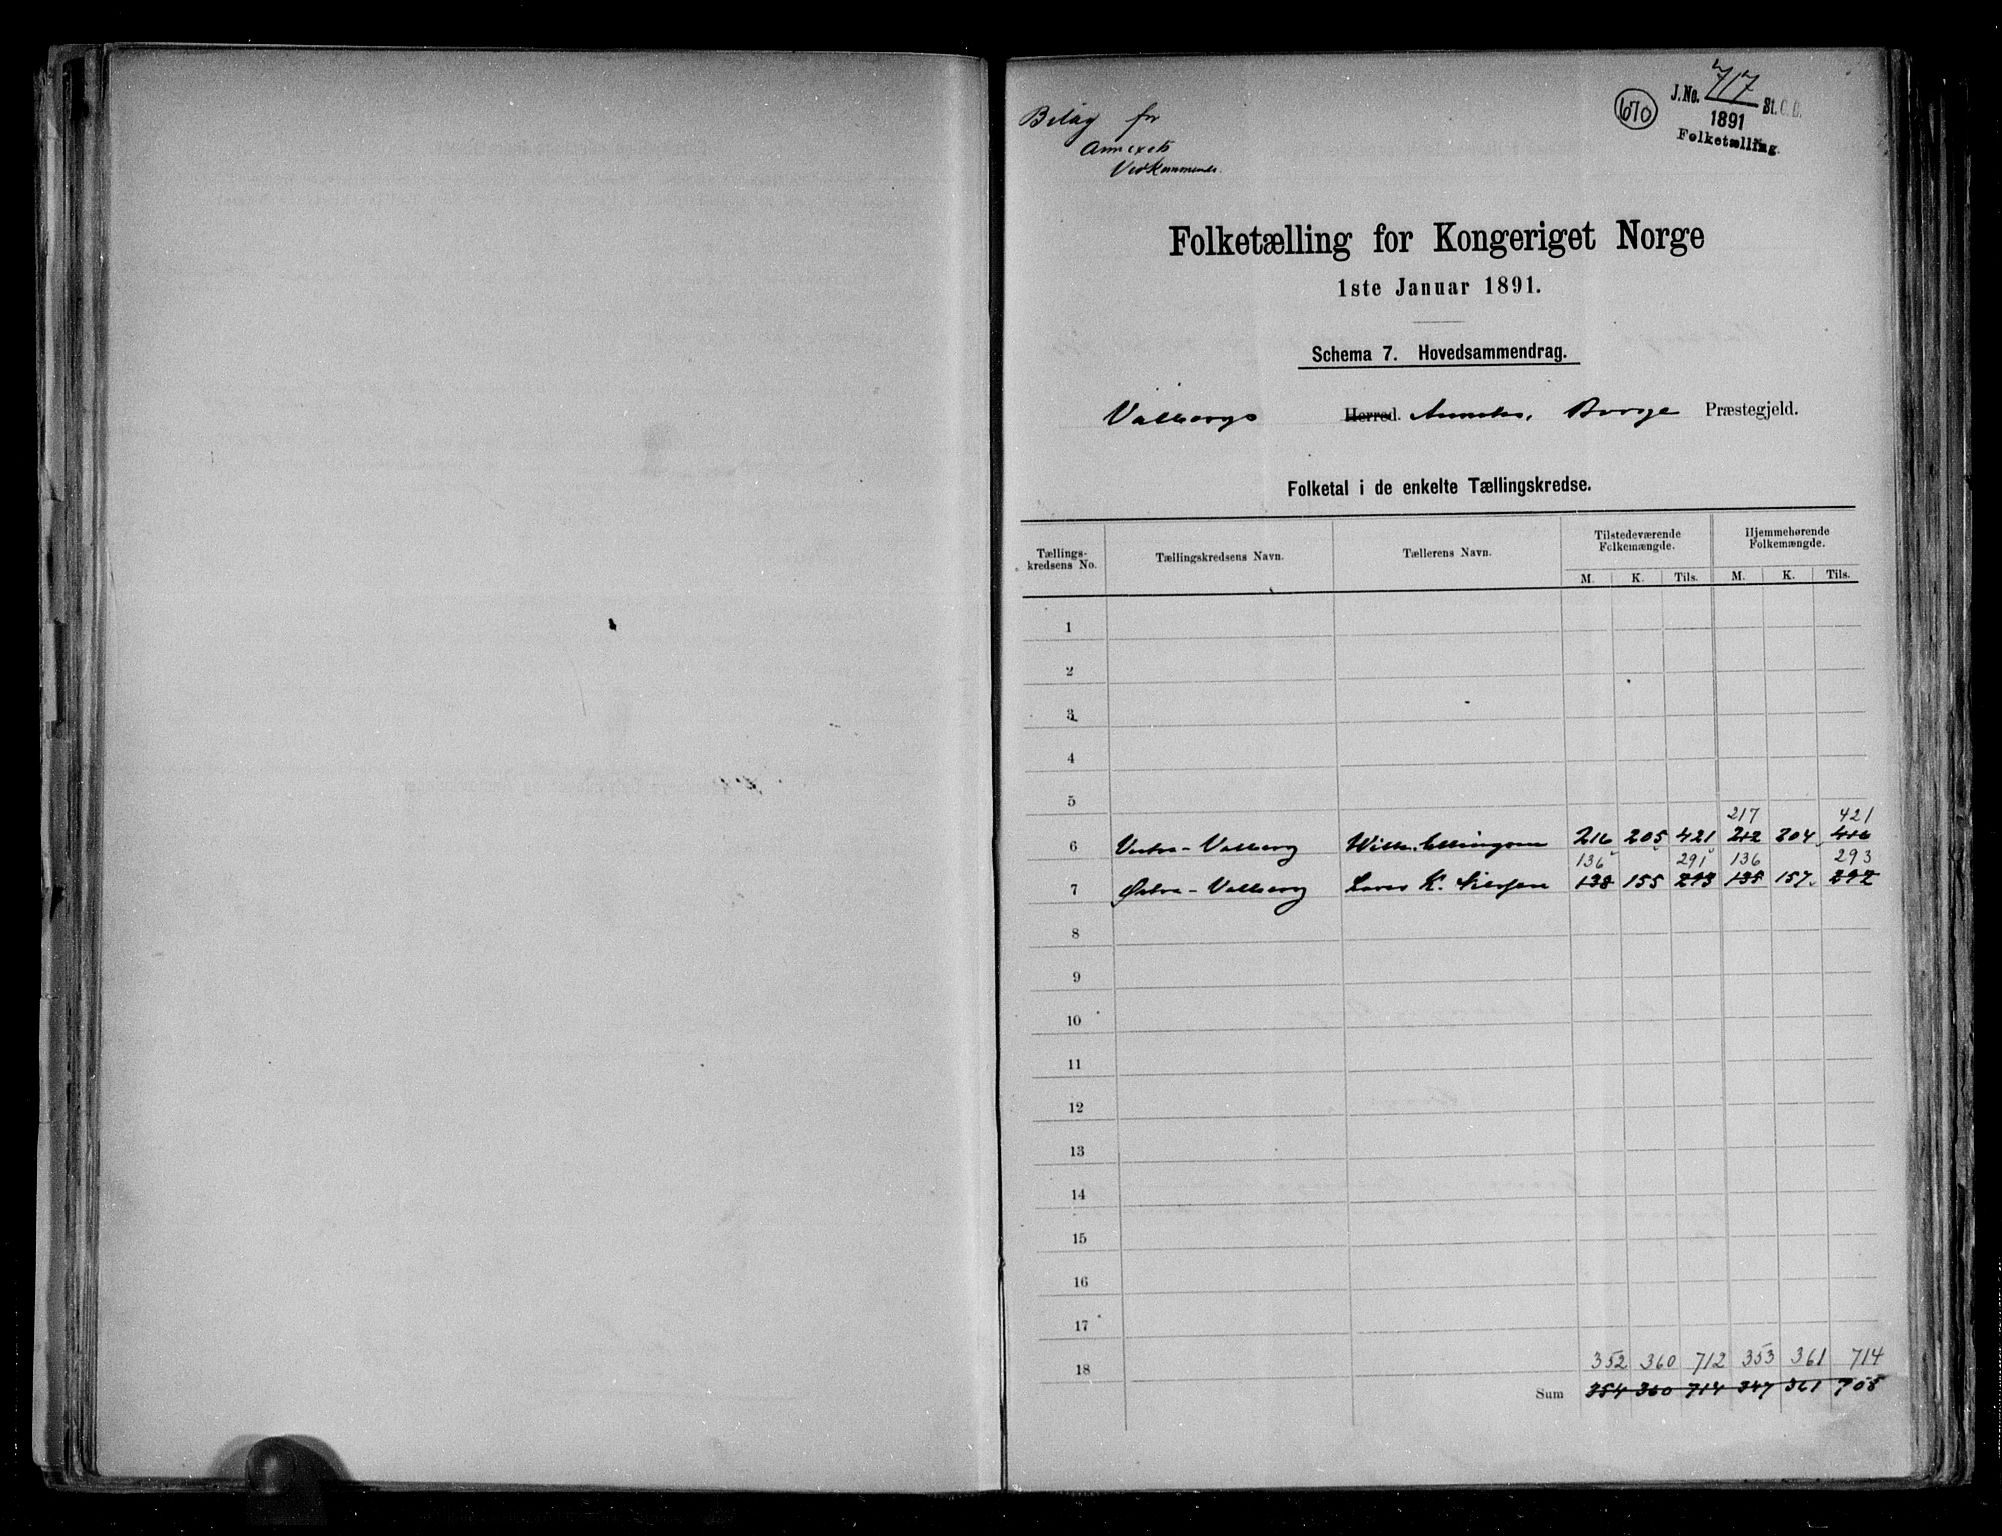 Bilag for
Annexets
Vedkommende.
670
J. No. 717 St. C. B.
1891
Folketælling.
Folketælling for Kongeriget Norge
1ste Januar 1891.
Schema 7. Hovedsammendrag.
Valbergs Herred. Anneks, Borge Præstegjeld.
Folketal i de enkelte Tællingskredse.
Tællings-kredsens No. Tællingskredsens Navn. Tællerens Navn. Tilstedeværende Folkemængde. Hjemmehørende Folkemængde.
M. K. Tils. M. K. Tils.
1
2
3
4
5
217 421
6 Vestre-Valberg Ellingsen 216 205 421 212 204 416
136 291 136 293
7 Østre-Valberg K. 138 155 293 135 157 292
8
9
10
11
12
13
14
15
16
17
18 352 360 712 353 361 714
Sum 354 360 714 347 361 708